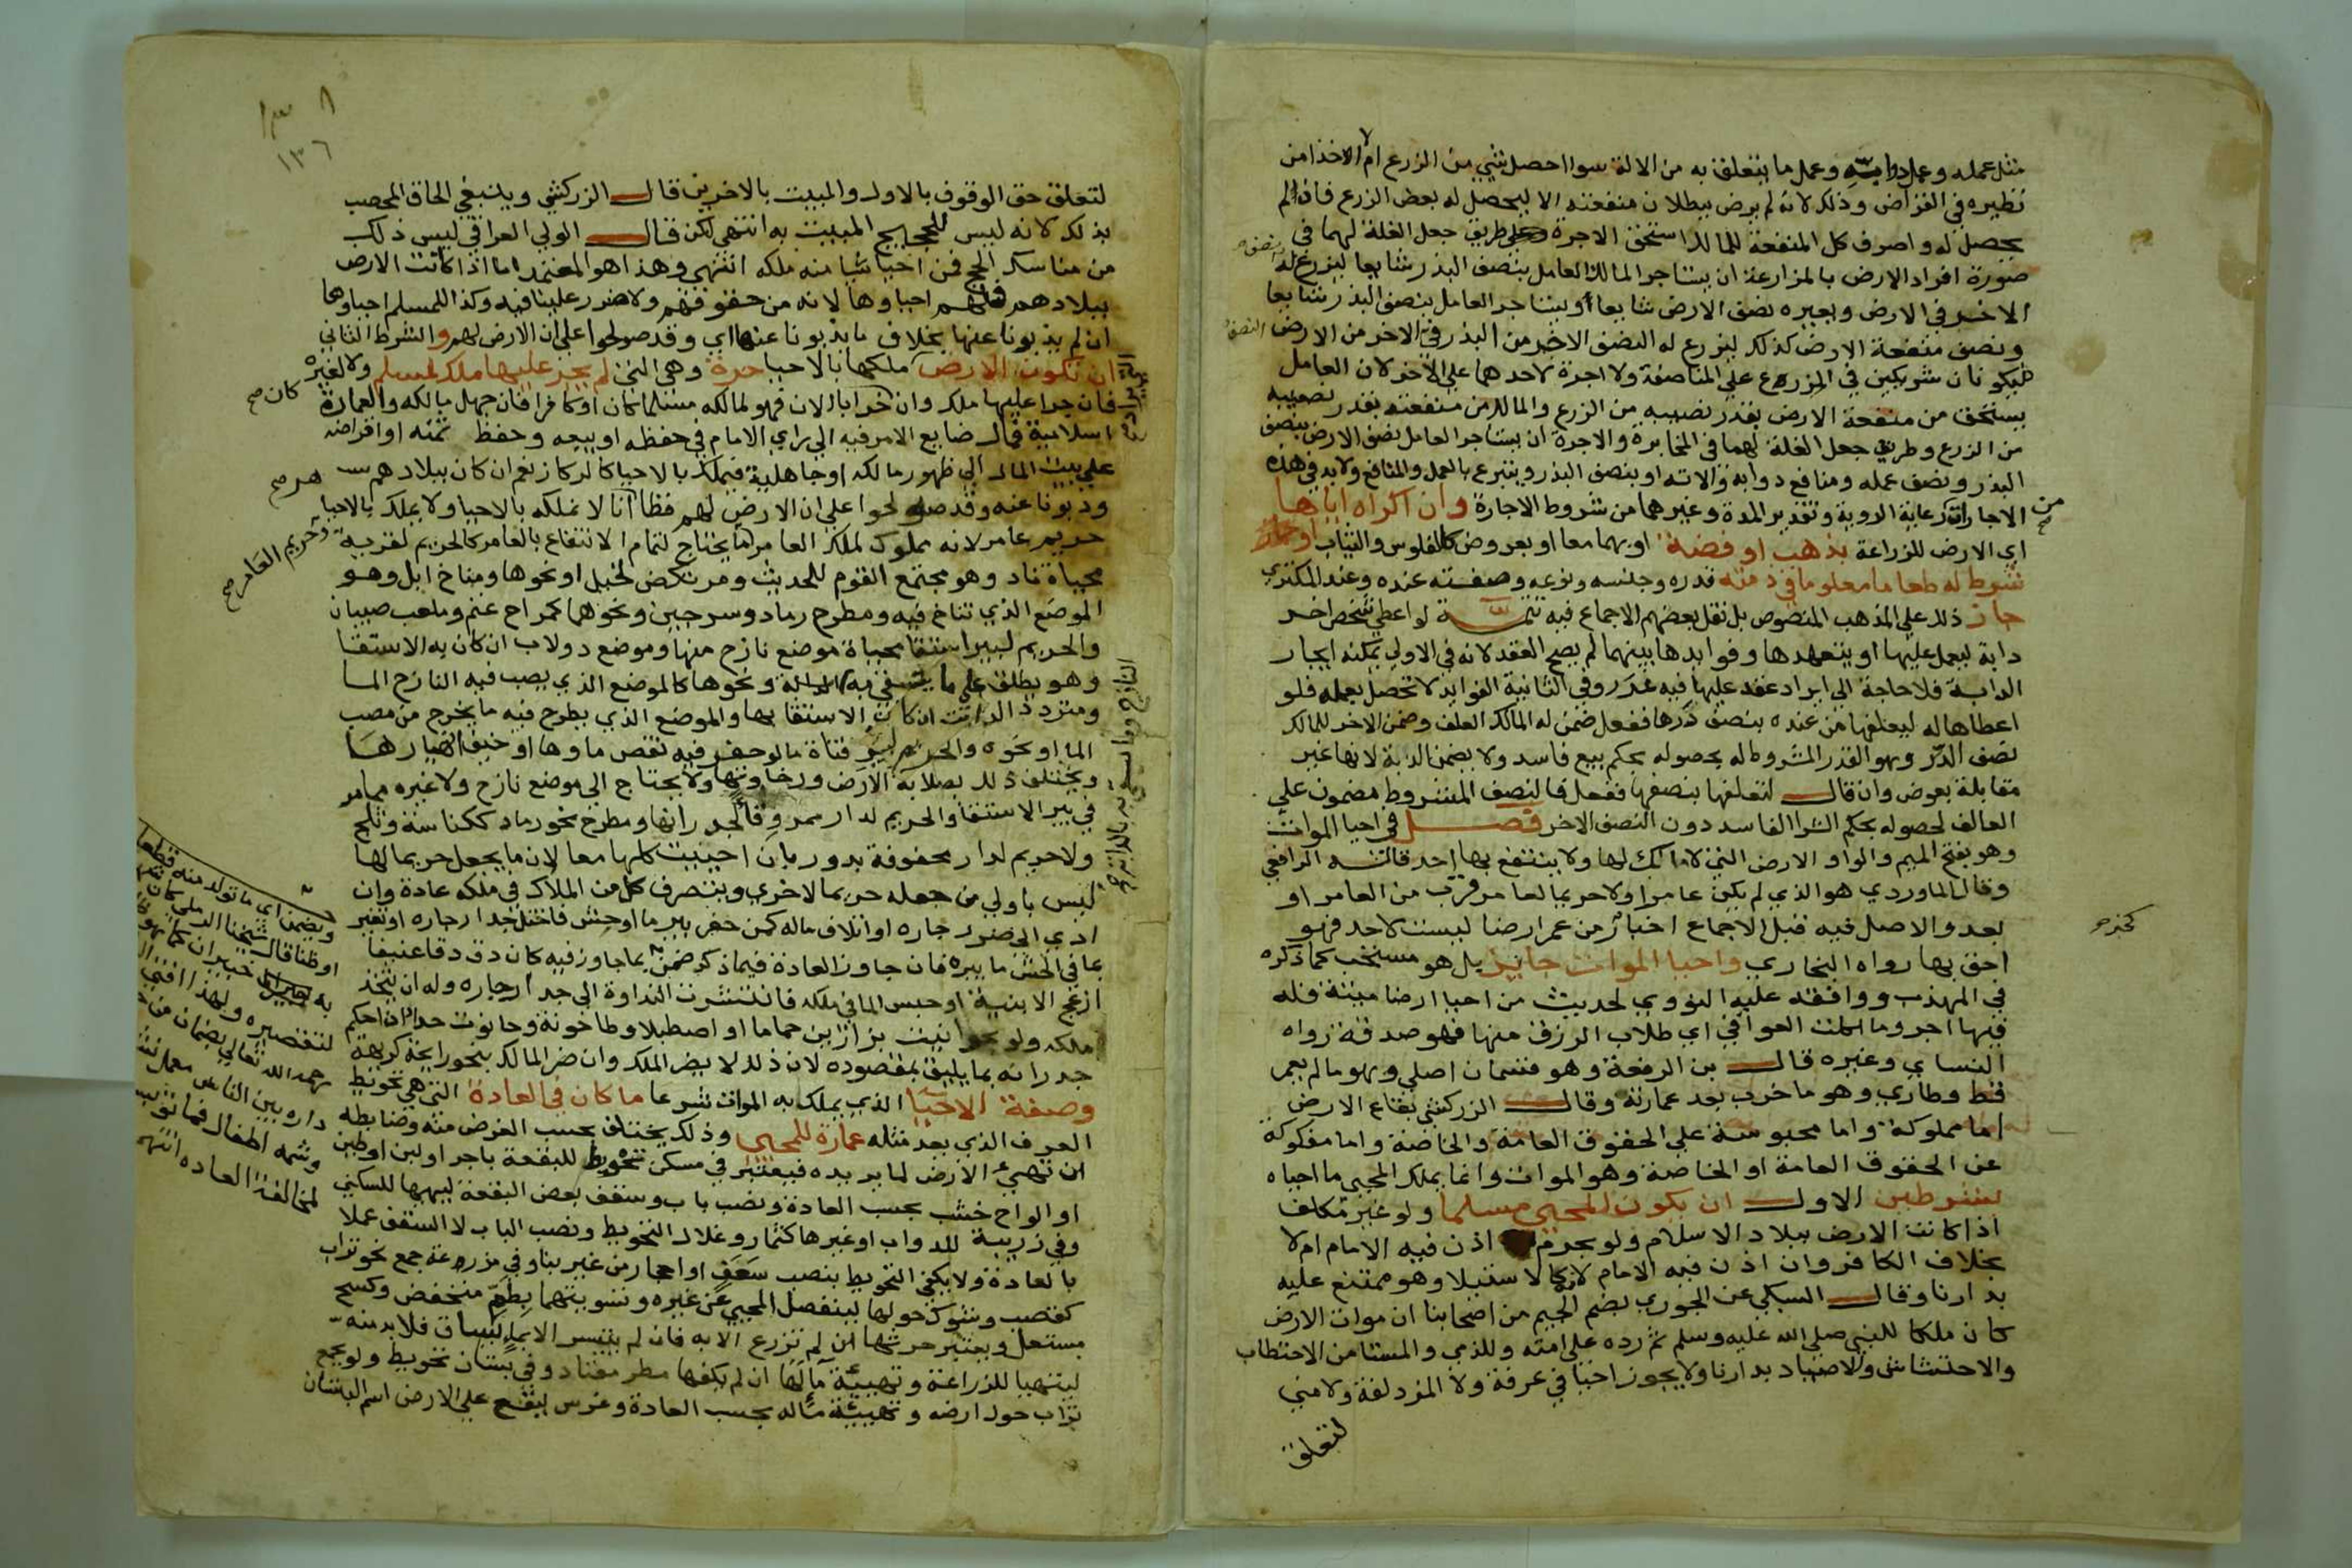 مثل عمله وعمل دوابه وعمل ما يتعلق به من الالة سوا احصل شي من الزرع ام لا اخذا من
نظيره في القراض وذلك لانه لم يرض ببطلان منفعته الا ليحصل له بعض الزرع فاذا لم
يحصل له واصرف كل المنفعة للمالك استحق الاجرة وطريق جعل الغلة لهما في
صورة افراد الارض بالمزارعة ان يستاجر المالك العامل بنصف البذر شايعا ليزرع له النصف
الاخر في الارض ويعيره نصف الارض شايعا او يستاجر العامل بنصف البذر شايعا
ونصف منفعة الارض كذلك ليزرع له النصف الاخر من البذر في النصف الاخر من الارض
فيكونان شريكين في الزرع على المناصفة ولا اجرة لاحدهما على الاخر لان العامل
يستحق من منفعة الارض بقدر نصيبه من الزرع والمالك من منفعته بقدر نصيبه
من الزرع وطريق جعل الغلة لهما في المخابرة والاجرة ان يستاجر العامل نصف الارض بنصف
البذر ونصف عمله ومنافع دوابه والاته او بنصف البذر ويتبرع بالعمل والمنافع ولابد في هذه
الاجارات من رعاية الروية وتقدير المدة وغيرهما من شروط الاجارة وان اكراه اياها
اي الارض للزراعة بذهب او فضة او بهما معا او بعروض كالفلوس والثياب او
شرط له طعاما معلوما في ذمته قدره وجنسه ونوعه وصفته عنده وعند المكتري
جاز ذلك على المذهب المنصوص بل نقل بعضهم الاجماع فيه تتمة لو اعطى شخص اخر
دابة ليعمل عليها او يتعهدها وفوايدها بينهما لم يصح العقد لانه في الاولى يمكنه ايجار
الدابة فلا حاجة الى ايراد عقد عليها فيه غرر وفي الثانية الفوايد لا تحصل بعمله فلو
اعطاها له ليعلفها من عنده بنصف درها ففعل ضمن له المالك العلف وضمن الاخر للمالك
نصف الدر وهو القدر المشروط له بحصوله بحكم بيع فاسد ولا يضمن الدابة لانها غير
مقابلة بعوض وان قال لتعلفها بنصفها ففعل فالنصف المشروط مضمون على
العالف لحصوله بحكم الشرا الفاسد دون النصف الاخر فصل في احيا الموات
وهو بفتح الميم والواو الارض التي لا مالك لها ولا ينتفع بها احد قاله الرافعي
وقال الماوردي هو الذي لم يكن عامرا ولا حريما لعامر قرب من العامر او
بعد والاصل فيه قبل الاجماع اخبار كخبر من عمر ارضا ليست لاحد فهو
احق بها رواه البخاري واحيا الموات جايز بل هو مستحب كما ذكره
في المهذب ووافقه عليه النووي لحديث من احيا ارضا ميتة فله
فيها اجر وما اكلت العوافي اي طلاب الرزق منها فهو صدقة رواه
النساي وغيره قال بن الرفعة وهو قسمان اصلي وهو ما لم يعمر
قط وطاري وهو ما خرب بعد عمارته وقال الزركشي بقاع الارض
اما مملوكة واما محبوسة على الحقوق العامة والخاصة واما مفكوكة
عن الحقوق العامة او الخاصة وهو الموات وانما يملك المحيي ما احياه
بشرطين الاول ان يكون المحيي مسلما ولو غير مكلف
اذا كانت الارض ببلاد الاسلام ولو بحرم اذن فيه الامام ام لا
بخلاف الكافر وان اذن فيه الامام لانه كالاستيلا وهو ممتنع عليه
بدارنا وقال السبكي عن الجوري بضم الجيم من اصحابنا ان موات الارض
كان ملكا للنبي صلى الله عليه وسلم ثم رده على امته وللذمي والمستامن الاحتطاب
والاحتشاش والاصطياد بدارنا ولا يجوز احيا في عرفة ولا المزدلفة ولا منى
لتعلق
١٣٦
لتعلق حق الوقوف بالاول والمبيت بالاخرين قال الزركشي وينبغي الحاق المحصب
بذلك لانه ليس للحجيج المبيت به انتهى لكن قال الولي العراقي ليس ذلك
من مناسك الحج فمن احيا شيا منه ملكه انتهى وهذا هو المعتمد اما اذا كانت الارض
ببلادهم فلهم احياوها لانه من حقوقهم ولا ضرر علينا فيه وكذا للمسلم احياوها
ان لم يذبونا عنها بخلاف ما يذبونا عنها اي وقد صولحوا على ان الارض لهم والشرط الثاني
ان تكون الارض ملكها بالاحيا حرة وهي التي لم يجر عليها ملك لمسلم ولا لغيره
فان جرا عليها ملك وان كان خرابا الان فهو لمالكه مسلما كان او كافرا فان جهل مالكه والعمارة
اسلامية فمال ضايع الامر فيه الى راي الامام في حفظه او بيعه وحفظ ثمنه او اقراضه
على بيت المال الى ظهور مالكه او جاهلية فيملك بالاحيا كالركاز نعم ان كان ببلادهم
وذبونا عنه وقد صولحوا على ان الارض لهم فظاهر انا لا نملكه بالاحيا ولا يملك بالاحيا
حريم عامر لانه مملوك لمالك العامر وحريم العامر ما يحتاج لتمام الانتفاع بالعامر كالحريم لقرية
محياة ناد وهو مجتمع القوم للحديث ومرتكض لخيل او نحوها ومناخ ابل وهو
الموضع الذي تناخ فيه ومطرح رماد وسرجين ونحوهما كمراح غنم وملعب صبيان
والحريم لبير استقا محياة موضع نازح منها وموضع دولاب ان كان به الاستقا
وهو يطلق على ما يستقي به النازح وما يستقى به بالدابة ونحوها كالموضع الذي يصب فيه النازح الما
ومتردد الدابة ان كان الاستقا بها والموضع الذي يطرح فيه ما يخرج من مصب
الما او نحوه والحريم لبير قناة ما لو حفر فيه نقص ماوها او خيف انهيارها
ويختلف ذلك بصلابة الارض ورخاوتها ولا يحتاج الى موضع نازح ولا غيره مما مر
في بير الاستقا والحريم لدار ممر وفنا لجدرانها ومطرح نحو رماد ككناسة وثلج
ولا حريم لدار محفوفة بدور بان احييت كلها معا لان ما يجعل حريما لها
ليس باولى من جعله حريما لاخرى ويتصرف كل من الملاك في ملكه عادة وان
ادى الى ضرر جاره او اتلاف ماله كمن حفر بير ما او حش فاختل جدار جاره او تغير
بما في الحش ما بيره فان جاوز العادة فيما ذكر ضمن بما جاوز فيه كان دق دقا عنيفا
ازعج الابنية او حبس الما في ملكه فانتشرت النداوة الى جدار جاره وله ان يتخذ
ملكه ولو بحوانيت بزازين حماما او اصطبلا وطاحونة وحانوت حداد ان احكم
جدرانه بما يليق بمقصوده لان ذلك لا يضر الملك وان ضر المالك بنحو رايحة كريهة
وصفة الاحيا الذي يملك به الموات شرعا ما كان في العادة التي هي
العرف الذي يعد مثله عمارة للمحيي وذلك يختلف بحسب الغرض منه وضابطه
ان تهيئ الارض لما يريده فيعتبر في مسكن تحويط للبقعة باجر او لبن او طين
او الواح خشب بحسب العادة ونصب باب وسقف بعض البقعة ليهيها للسكنى
وفي زريبة للدواب او غيرها كثمار وغلال التحويط ونصب الباب لا السقف عملا
بالعادة ولا يكفي التحويط بنصب سعف او احجار من غير بنا وفي مزرعة جمع نحو تراب
كقصب وشوك حولها لينفصل المحيى عن غيره وتسويتها بطم منخفض وكسح
مستعل ويعتبر حرثها ان لم تزرع الا به فان لم يتيسر الا بما يساق فلابد منه
لتتهيا للزراعة وتهيئة ما لها ان لم يكفها مطر معتاد وفي بستان تحويط ولو بجمع
تراب حول ارضه وتهيئة ما له بحسب العادة وغرس ليقع على الارض اسم البستان